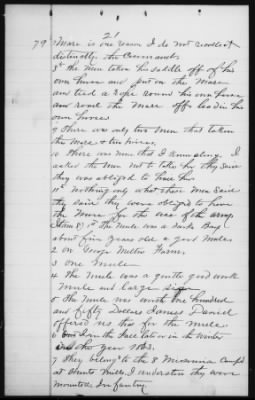 21
79 Mare is one reason I do not recollect
distinctly the Comments.
8th the men taken the saddle off of his
own horse and put on the Mare
and tied a rope round his own horse
and rode the Mare off leadin his
own horse
9 there was only two men that taken
the Mare & two horses.
10 there was none that I know of. I
asked the men not to take her they said
they was obliged to have her
11th nothing only what those Men said
they said they were obliged to have
the Mare for the use of the army
(Item 8) 1st the Mule was a Dark Bay
about five years old a good Mule
2 on George Millers Farm.
3 one Mule
4 the mule was a gentle good work
Mule and large
5 the Mule was worth one hundred
and fifty Dollars James Daniel
offered us this for the mule
6 in the Fall late or in the winter
the year 1863.
7 they belong to the 8 Camp
at Mills I understan they were
mounted Infantry